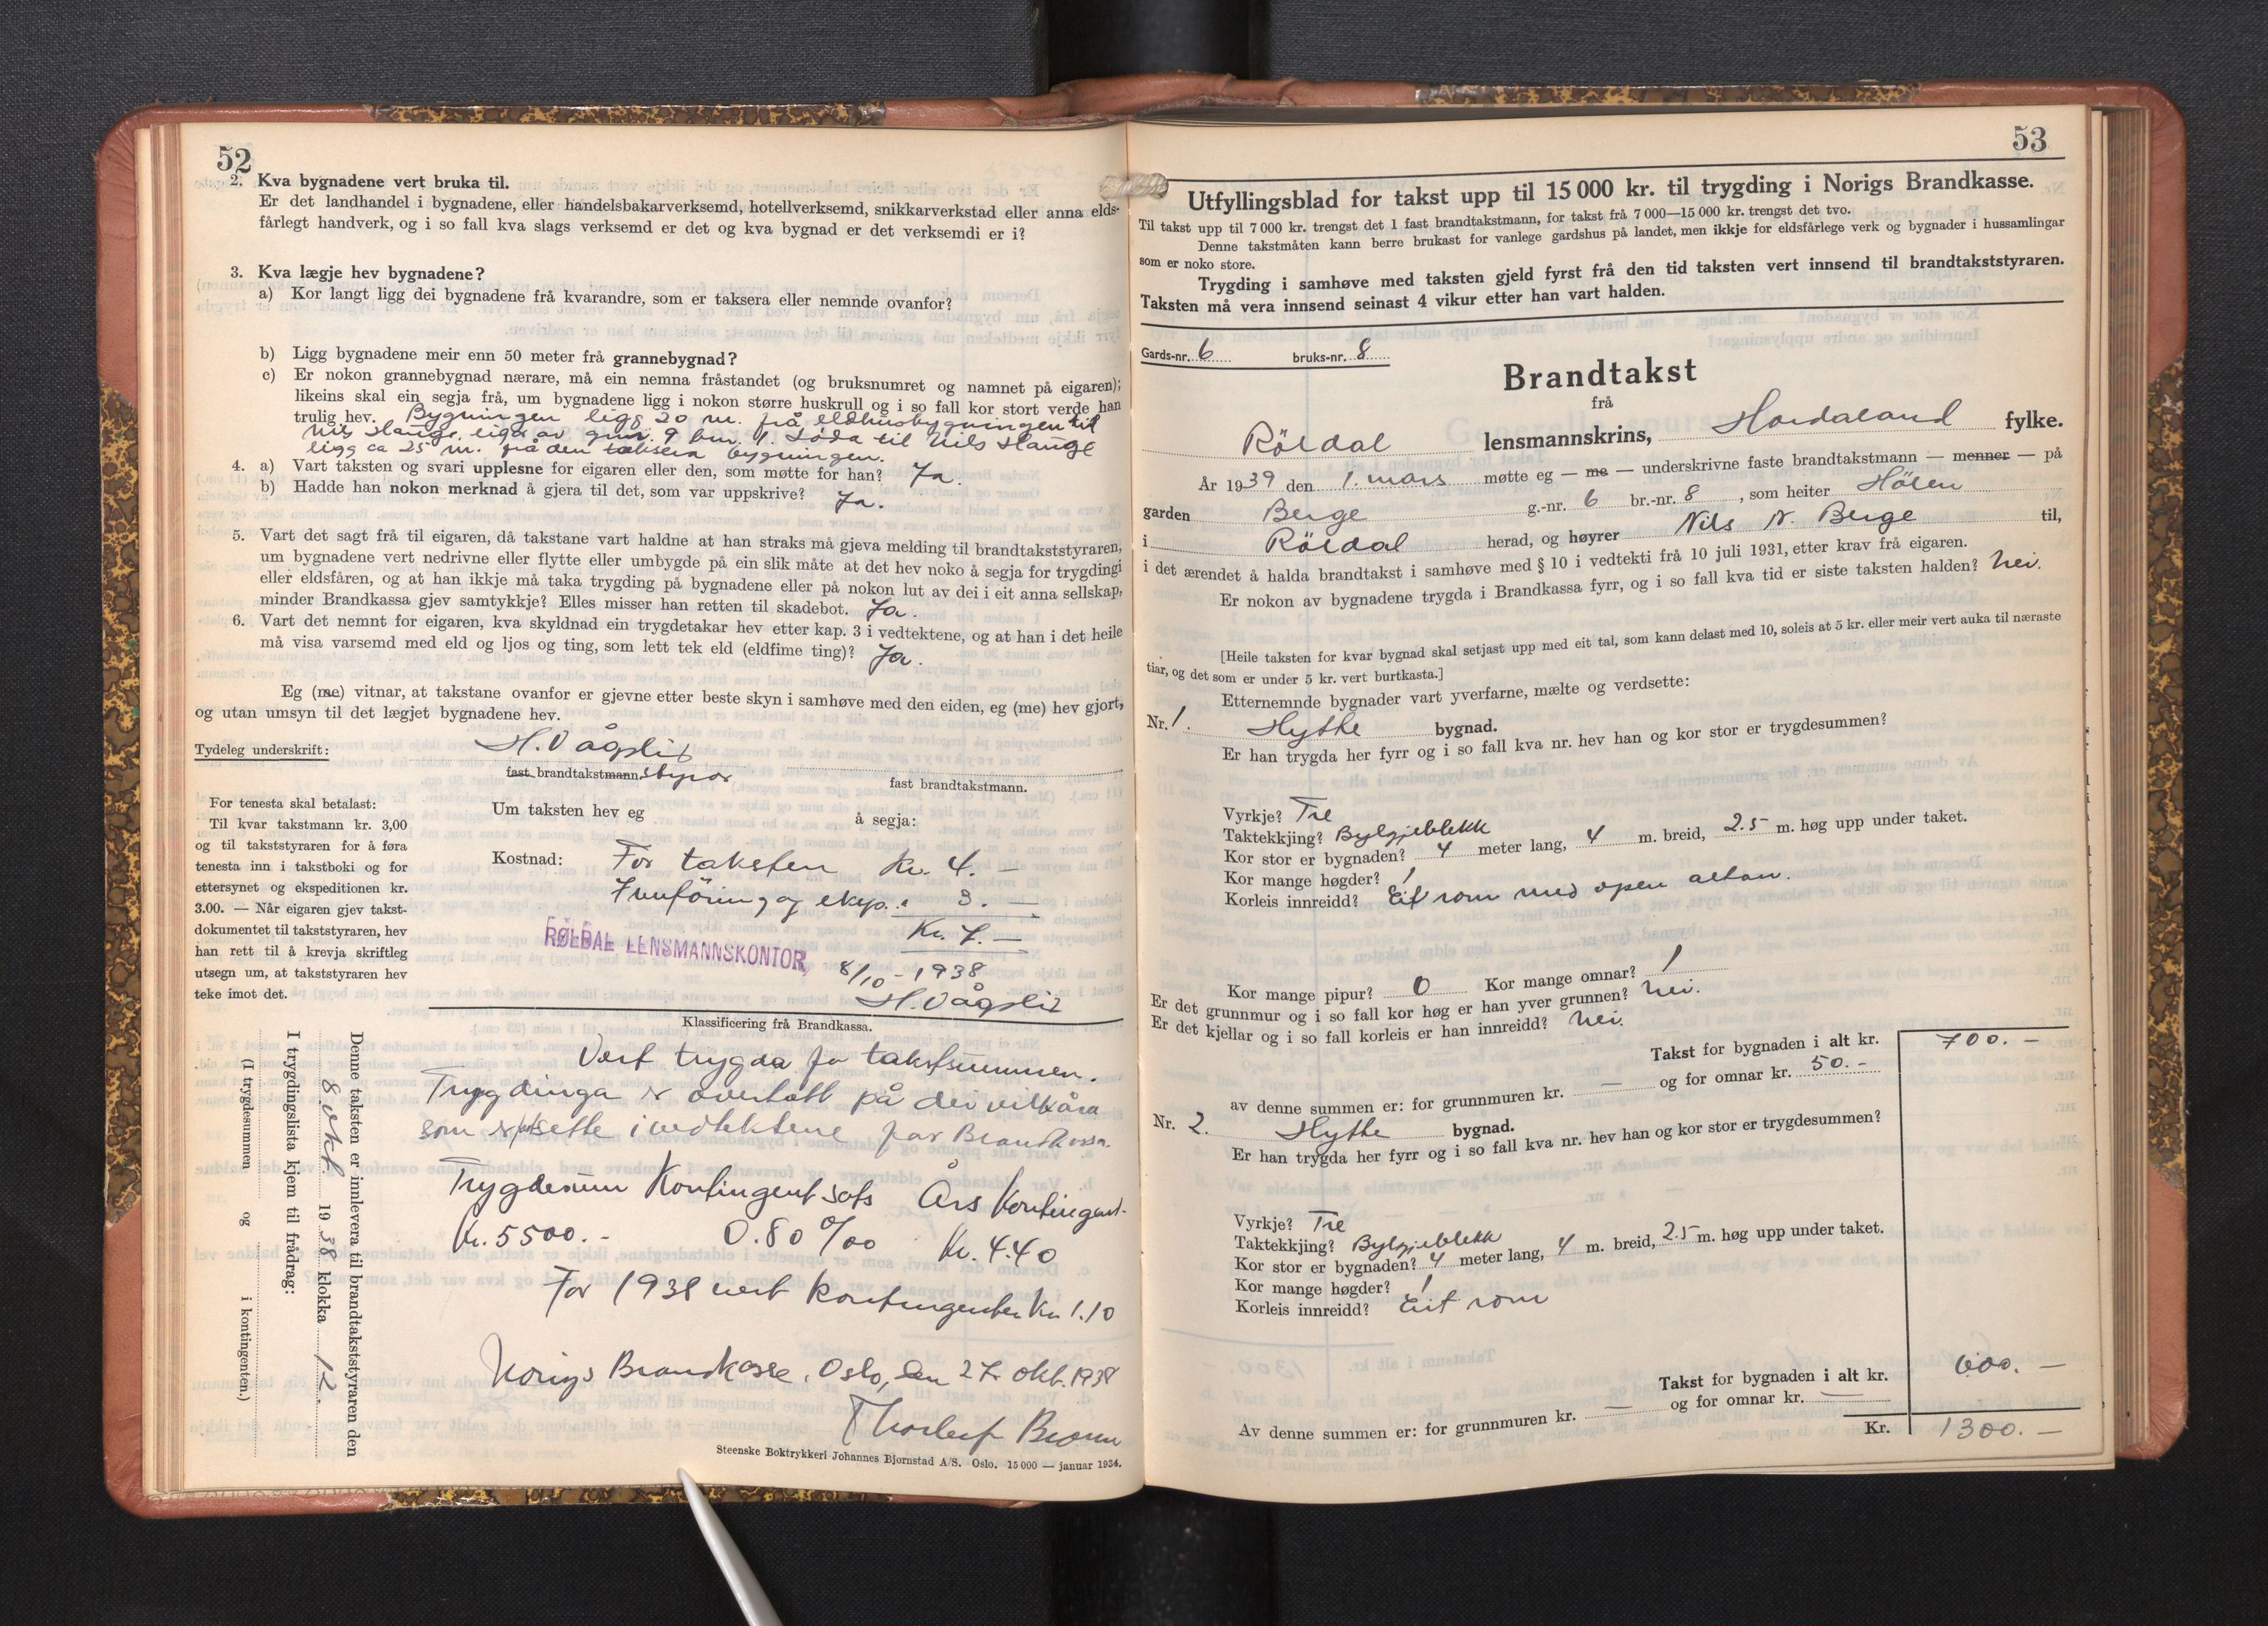 52
2. Kva bygnadene vert bruka til.
Er det landhandel i bygnadene, eller handelsbakarverksemd, hotellverksemd, snikkarverkstad eller anna elds-
fårlegt handverk, og i so fall kva slags verksemd er det og kva bygnad er det verksemdi er i?
3. Kva lægje hev bygnadene?
a) Kor langt ligg dei bygnadene frå kvarandre, som er taksera eller nemnde ovanfor?
b) Ligg bygnadene meir enn 50 meter frå grannebygnad?
c) Er nokon grannebygnad nærare, må ein nemna fråstandet (og bruksnumret og namnet på eigaren);
likeins skal ein segja frå, um bygnadene ligg i nokon større huskrull og i so fall kor stort verde han
trulig hev. Bygningen ligg 20 m. frå eldhusbygningen til
Nils Hauge, eigar av gnr. 9 bnr. 1. Löda til Nils Hauge
ligg ca 25 m. frå den taksera bygningen.
4. a) Vart taksten og svari upplesne for eigaren eller den, som møtte for han? Ja.
b) Hadde han nokon merknad å gjera til det, som var uppskrive? Ja.
5. Vart det sagt frå til eigaren, då takstane vart haldne at han straks må gjeva melding til brandtakststyraren,
um bygnadene vert nedrivne eller flytte eller umbygde på ein slik måte at det hev noko å segja for trygdingi
eller eldsfåren, og at han ikkje må taka trygding på bygnadene eller på nokon lut av dei i eit anna sellskap,
minder Brandkassa gjev samtykkje? Elles misser han retten til skadebot. Ja.
6. Vart det nemnt for eigaren, kva skyldnad ein trygdetakar hev etter kap. 3 i vedtektene, og at han i det heile
må visa varsemd med eld og ljos og ting, som lett tek eld (eldfime ting)? Ja.
Eg (me) vitnar, at takstane ovanfor er gjevne etter beste skyn i samhøve med den eiden, eg (me) hev gjort,
og utan umsyn til det lægjet bygnadene hev.
Tydeleg underskrift: H. Vågslid
fast brandtakstmann styrar fast brandtakstmann.
For tenesta skal betalast:
Til kvar takstmann kr. 3,00
og til takststyraren for å føra
tenesta inn i takstboki og for
ettersynet og ekspeditionen kr.
3.00. — Når eigaren gjev takst-
dokumentet til takststyraren, hev
han rett til å krevja skriftleg
utsegn um, at takststyraren hev
teke imot det.
Um taksten hev eg å segja:
Kostnad: For taksten Kr. 4. —
Innföring og eksp. " 3. —
Kr. 7. —
RØLDAL LENSMANNSKONTOR, 8/10 - 1938
H. Vågslid
Klassificering frå Brandkassa.
Vert trygda for takstsummen.
Trygdinga er overtatt på dei vilkåra
som er fastsette i vedtektene for Brandkassa.
Trygdesum Kontingentsats Års Kontingent.
Kr. 5500. - 0.80 ‰ Kr. 4.40
For 1938 vert kontingenten Kr 1.10
Norigs Brandkasse, Oslo, den 27. okt. 1938
Thorleif
Steenske Boktrykkeri Johannes Bjørnstad A/S. Oslo. 15 000 — januar 1934.
Denne taksten er innlevera til brandtakststyraren den
8. okt. 1938 klokka 12.
I trygdingslista kjem til frådrag:
(I trygdesummen og i kontingenten.)
53
Utfyllingsblad for takst upp til 15 000 kr. til trygding i Norigs Brandkasse.
Til takst upp til 7 000 kr. trengst det 1 fast brandtakstmann, for takst frå 7 000—15 000 kr. trengst det tvo.
Denne takstmåten kann berre brukast for vanlege gardshus på landet, men ikkje for eldsfårlege verk og bygnader i hussamlingar
som er noko store.
Trygding i samhøve med taksten gjeld fyrst frå den tid taksten vert innsend til brandtakststyraren.
Taksten må vera innsend seinast 4 vikur etter han vart halden.
Gards-nr. 6 bruks-nr. 8
Brandtakst
frå
Röldal lensmannskrins, Hordaland fylke.
År 1939 den 1. mars møtte eg — me — underskrivne faste brandtakstmann — menner — på
garden Berge g.-nr. 6 br.-nr. 8, som heiter Hölen
i Röldal herad, og høyrer Nils N. Berge til,
i det ærendet å halda brandtakst i samhøve med § 10 i vedtekti frå 10 juli 1931, etter krav frå eigaren.
Er nokon av bygnadene trygda i Brandkassa fyrr, og i so fall kva tid er siste taksten halden? Nei.
[Heile taksten for kvar bygnad skal setjast upp med eit tal, som kann delast med 10, soleis at 5 kr. eller meir vert auka til næraste
tiar, og det som er under 5 kr. vert burtkasta.]
Etternemnde bygnader vart yverfarne, mælte og verdsette:
Nr. 1. Hytte bygnad.
Er han trygda her fyrr og i so fall kva nr. hev han og kor stor er trygdesummen?
Vyrkje? Tre
Taktekkjing? Bylgjeblekk
Kor stor er bygnaden? 4 meter lang, 4 m. breid, 2.5 m. høg upp under taket.
Kor mange høgder? 1
Korleis innreidd? Eit rom med open altan.
Kor mange pipur? 0 Kor mange omnar? 1
Er det grunnmur og i so fall kor høg er han yver grunnen? Nei.
Er det kjellar og i so fall korleis er han innreidd? Nei.
Takst for bygnaden i alt kr. 700. —
av denne summen er: for grunnmuren kr. — og for omnar kr. 50. —
Nr. 2. Hytte bygnad.
Er han trygda her fyrr og i so fall kva nr. hev han og kor stor er trygdesummen?
Vyrkje? Tre
Taktekkjing? Bylgjeblekk
Kor stor er bygnaden? 4 meter lang, 4 m. breid, 2.5 m. høg upp under taket.
Kor mange høgder? 1
Korleis innreidd? Eit rom
Takst for bygnaden i alt kr. 600. —
Av denne summen er: for grunnmuren kr. — og for omnar kr. —
Kr. 1300. —